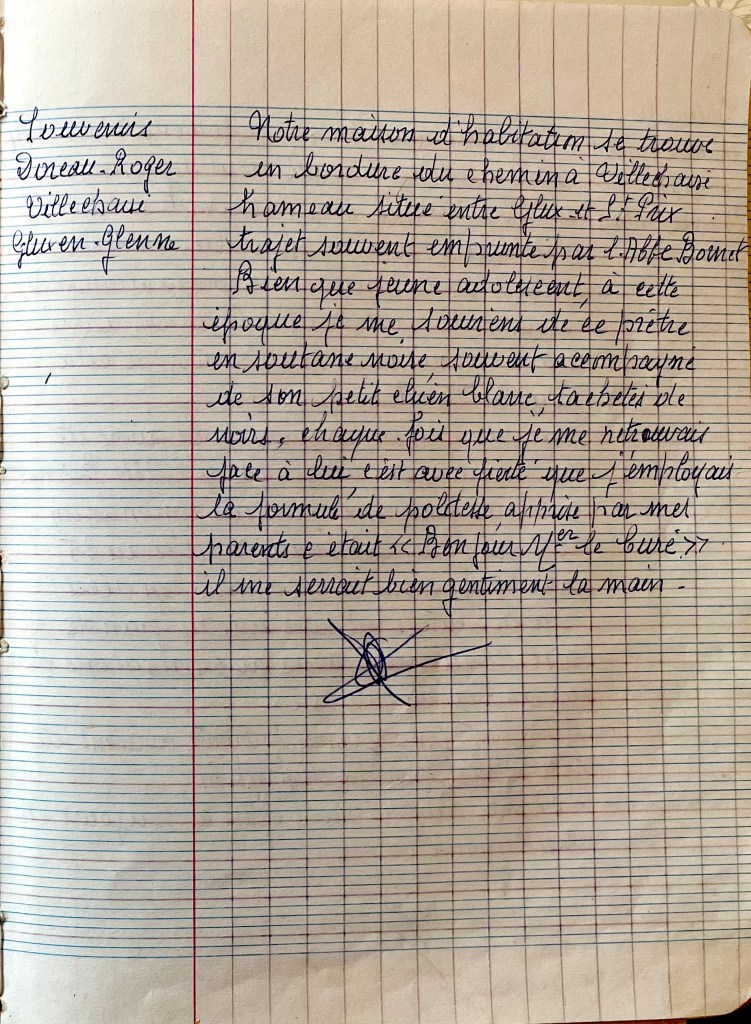 Souvenirs
Doreau-Roger
Villechaise
Glux en-Glenne
Notre maison d'habitation se trouve
en bordure du chemin à Villechaise
hameau situé entre Glux et St Prix
trajet souvent emprunté par l'Abbé Bornet
Bien que jeune adolescent, à cette
époque je me souviens de ce prêtre
en soutane noire, souvent acompagné
de son petit chien blanc, tachetés de
noirs, chaque fois que je me retrouvais
face à lui, c'est avec fierté que j'employais
la formule de politesse, apprise par mes
parents c'était << Bonjour Mer le Curé >>
il me serrait bien gentiment la main -